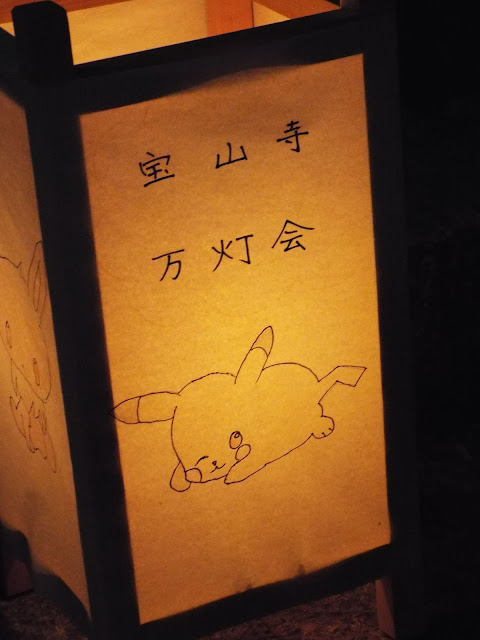 宝山寺
万灯会